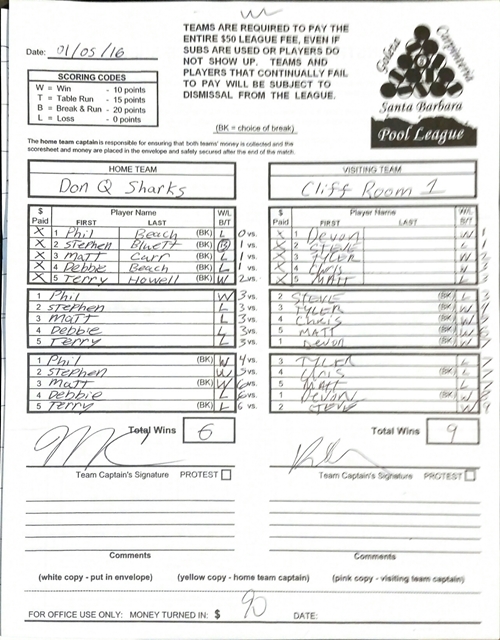 TEAMS ARE REQUIRED TO PAY THE
ENTIRE $50 LEAGUE FEE, EVEN IF
SUBS ARE USED OR PLAYERS DO
NOT SHOW UP. TEAMS AND
PLAYERS THAT CONTINUALLY FAIL
TO PAY WILL BE SUBJECT TO
DISMISSAL FROM THE LEAGUE.
Date: 01/05/16
SCORING CODES
W = Win - 10 points
T = Table Run - 15 points
B = Break & Run - 20 points
L = Loss - 0 points
Goleta Carpinteria
Santa Barbara
Pool League
(BK = choice of break)
The home team captain is responsible for ensuring that both teams' money is collected and the
scoresheet and money are placed in the envelope and safely secured after the end of the match.
HOME TEAM VISITING TEAM
Don Q Sharks Cliff Room 1
$ Paid Player Name FIRST LAST W/L B/T $ Paid Player Name FIRST LAST W/L B/T
X 1 Phil Beach (BK) L 0 vs. X 1 Devon W 1
X 2 Stephen Bluett (BK) B 1 vs. X 2 STEVE L 1
X 3 Matt Carr (BK) L 1 vs. X 3 TYLER W 2
X 4 Debbie Beach (BK) L 1 vs. X 4 Chris W 3
X 5 Terry Howell (BK) W 2 vs. X 5 MATT L 3
1 Phil W 3 vs. 2 STEVE (BK) L 3
2 Stephen L 3 vs. 3 TYLER (BK) W
3 Matt L 3 vs. 4 Chris (BK) W
4 Debbie L 3 vs. 5 MATT (BK) W
5 Terry L 3 vs. 1 Devon (BK) W 7
1 Phil (BK) W 4 vs. 3 TYLER L 7
2 Stephen W 5 vs. 4 Chris (BK) L 7
3 Matt (BK) W 6 vs. 5 MATT L 7
4 Debbie L 6 vs. 1 Devon (BK) W 8
5 Terry (BK) L 6 vs. 2 STEVE W 9
Total Wins 6 Total Wins 9
Team Captain's Signature PROTEST Team Captain's Signature PROTEST
Comments Comments
(white copy - put in envelope) (yellow copy - home team captain) (pink copy - visiting team captain)
FOR OFFICE USE ONLY: MONEY TURNED IN: $ 90 DATE: